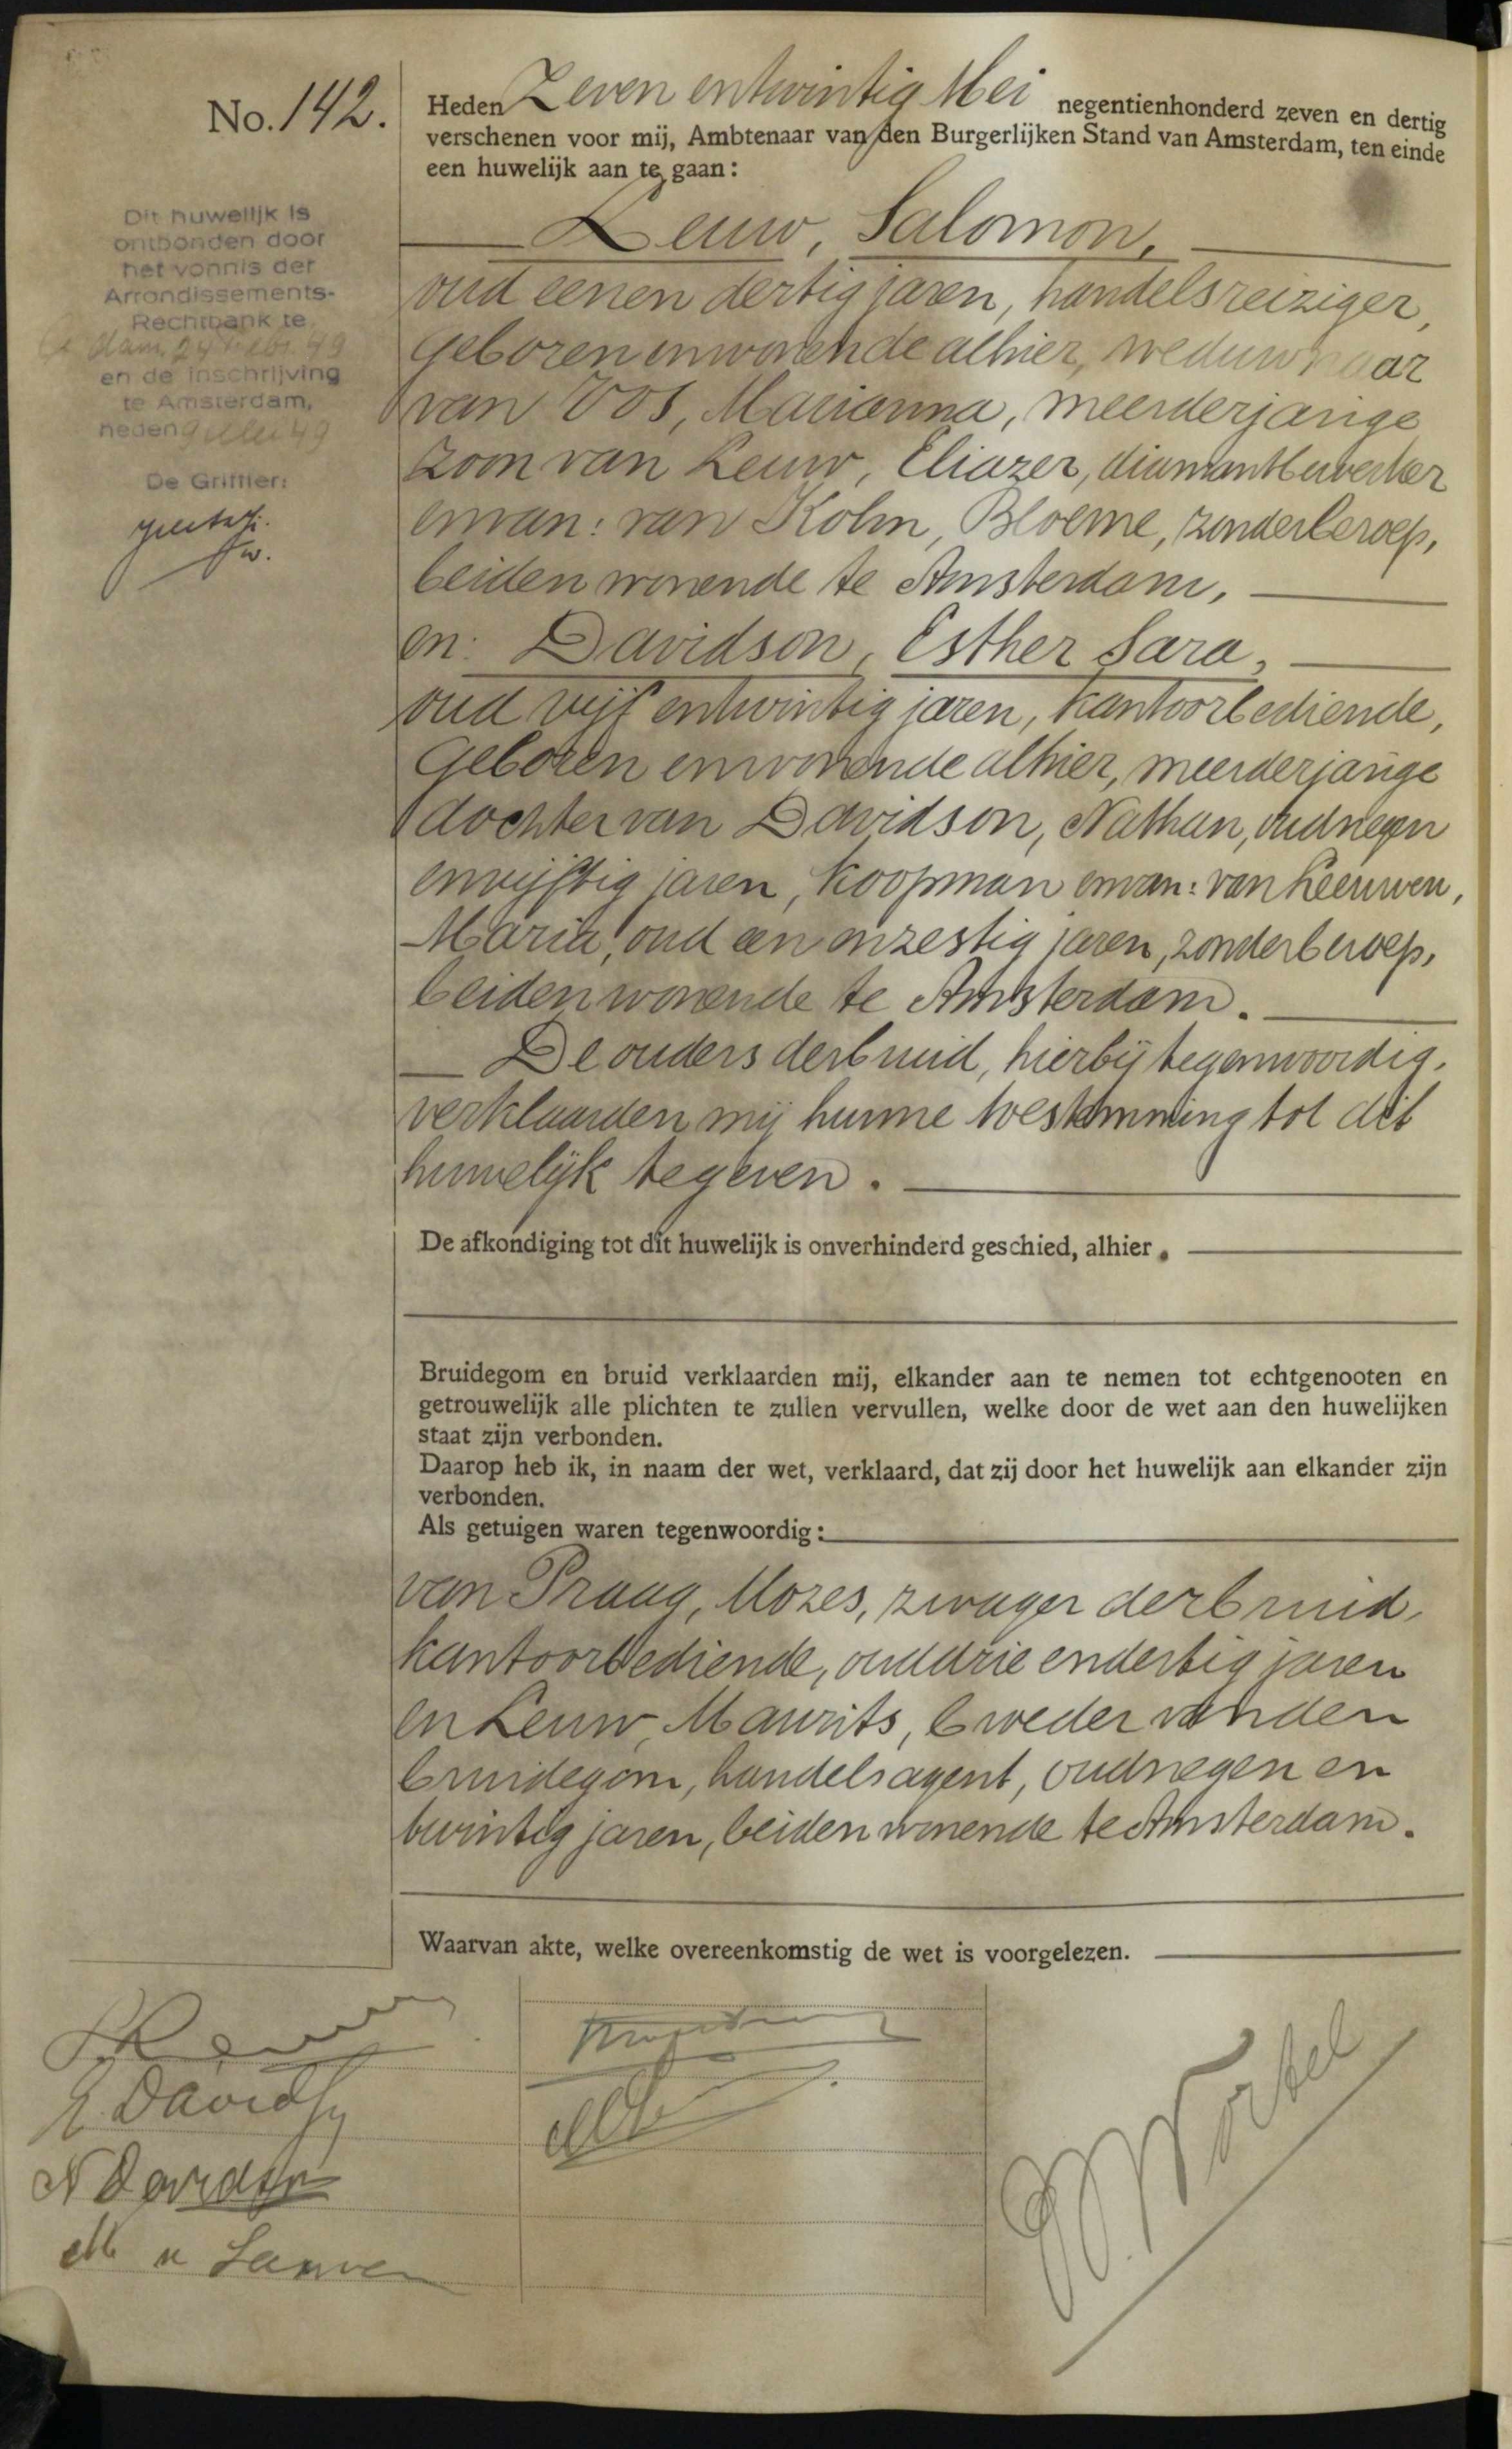 No. 142.
Heden Zeven en twintig Mei negentienhonderd zeven en dertig
verschenen voor mij, Ambtenaar van den Burgerlijken Stand van Amsterdam, ten einde
een huwelijk aan te gaan:
Leuw, Salomon,
oud een en dertig jaren, handelsreiziger,
geboren en wonende alhier, weduwnaar
van Vos, Marianna, meerderjarige
zoon van Leuw, Eliazer, diamantbewerker
en van: van Kolm, Bloeme, zonder beroep,
beiden wonende te Amsterdam,
en: Davidson, Esther Sara,
oud vijf en twintig jaren, kantoorbediende,
geboren en wonende alhier, meerderjarige
dochter van Davidson, Nathan, oud negen
en vijftig jaren, koopman en van: van Leeuwen,
Maria, oud een en zestig jaren, zonder beroep,
beiden wonende te Amsterdam.
De ouders der bruid, hierbij tegenwoordig,
verklaarden mij hunne toestemming tot dit
huwelijk te geven.
De afkondiging tot dit huwelijk is onverhinderd geschied, alhier.
Bruidegom en bruid verklaarden mij, elkander aan te nemen tot echtgenooten en
getrouwelijk alle plichten te zullen vervullen, welke door de wet aan den huwelijken
staat zijn verbonden.
Daarop heb ik, in naam der wet, verklaard, dat zij door het huwelijk aan elkander zijn
verbonden.
Als getuigen waren tegenwoordig:
van Praag, Mozes, zwager der bruid,
kantoorbediende, oud drie en dertig jaren
en Leuw, Maurits, broeder van den
bruidegom, handelsagent, oud negen en
twintig jaren, beiden wonende te Amsterdam.
Waarvan akte, welke overeenkomstig de wet is voorgelezen.
Dit huwelijk is
ontbonden door
het vonnis der
Arrondissements-
Rechtbank te
A'dam, 24 Febr. 49
en de inschrijving
te Amsterdam,
heden 9 Mei 49
De Griffier:
S. Leuw
E. Davidson
N Davidson
M v Leeuwen